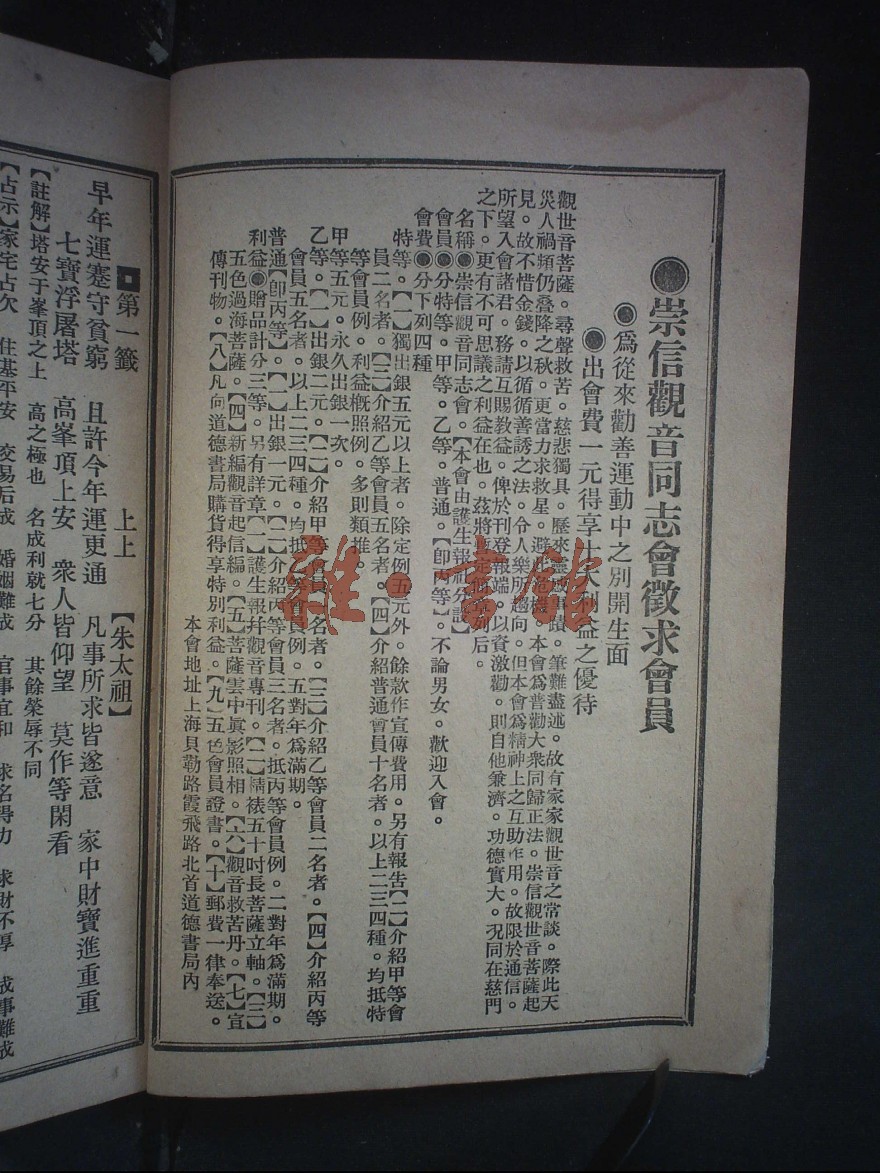 ●崇信觀音同志會徵求會員
●爲從來勸善運動中之別開生面
●出會費一元得享十大利益之優待
觀世音菩薩。尋聲救苦。慈悲獨具。歷來靈感事蹟。筆難盡述。故有家家觀世音之常談。際此天
災人禍頻仍叠降之秋。更當力求救星。避免危機。本會爲普勸大衆同歸正法。崇信觀世音菩薩起
見。故不惜金錢。以循循善誘之法。令人樂所趨向。但本會爲精神上之互助作用。故限於通信。
所望入會諸君。務請互賜教益。俾於刊登報端。以資激勸。則自他兼濟。功德實大。况同在慈門
之下。更有不可思議之利益在也。兹將定例等列后。
名稱●崇信觀音同志會。【本會由護生報社分設】
會員●分特等。甲等。乙等。普通。【卽丙等】。不論男女。歡迎入會。
會費●分下列四種
特等。【一】獨出銀五元以上者。除定例五元外。餘款作宣傳費用。另有報告【二】介紹甲等會
員二名者。【三】介紹乙等會員五名者。【四】介紹普通會員十名者。以上二三四種。均抵特
等會員例。利益概照例。多則類推。
甲等五元。永久出銀一次。
乙等。【一】出銀二元。【二】介紹甲等會員一名者。【三】介紹乙等會員二名者。【四】介紹丙等
會員五名者。以上二三四種。均抵乙等會員例。五對年爲滿期。
普通【卽丙等】。【一】出銀一元。【二】介紹丙等會員三名者。抵丙等會員例。二對年爲滿期。
利益●贈品計分三等。另有詳章【一】護生報幷觀音專刊。【二】精裱五十吋長菩薩立軸。【三】
五色過海菩薩。【四】新編觀音起信編。【五】菩薩雲中眞影照相。【六】觀音救苦丹。【七】宣
傳刊物。【八】凡向道德書局購貨得享特別利益。【九】五色會員證書。【十】郵費一律奉送。
本會地址上海貝勒路霞飛路北首道德書局內
第一籤 上上 【朱太祖】
早年運蹇守貧窮 且許今年運更通 凡事所求皆遂意 家中財寶進重重
七寶浮屠塔 高峯頂上安 衆人皆仰望 莫作等閑看
【註解】塔安于峯頂之上 高之極也 名成利就七分 其餘榮辱不同
【占示】家宅占欠 住基平安 交易后成 婚姻難成 官事宜和 求名得力 求財不厚 成事難成
雜·書館